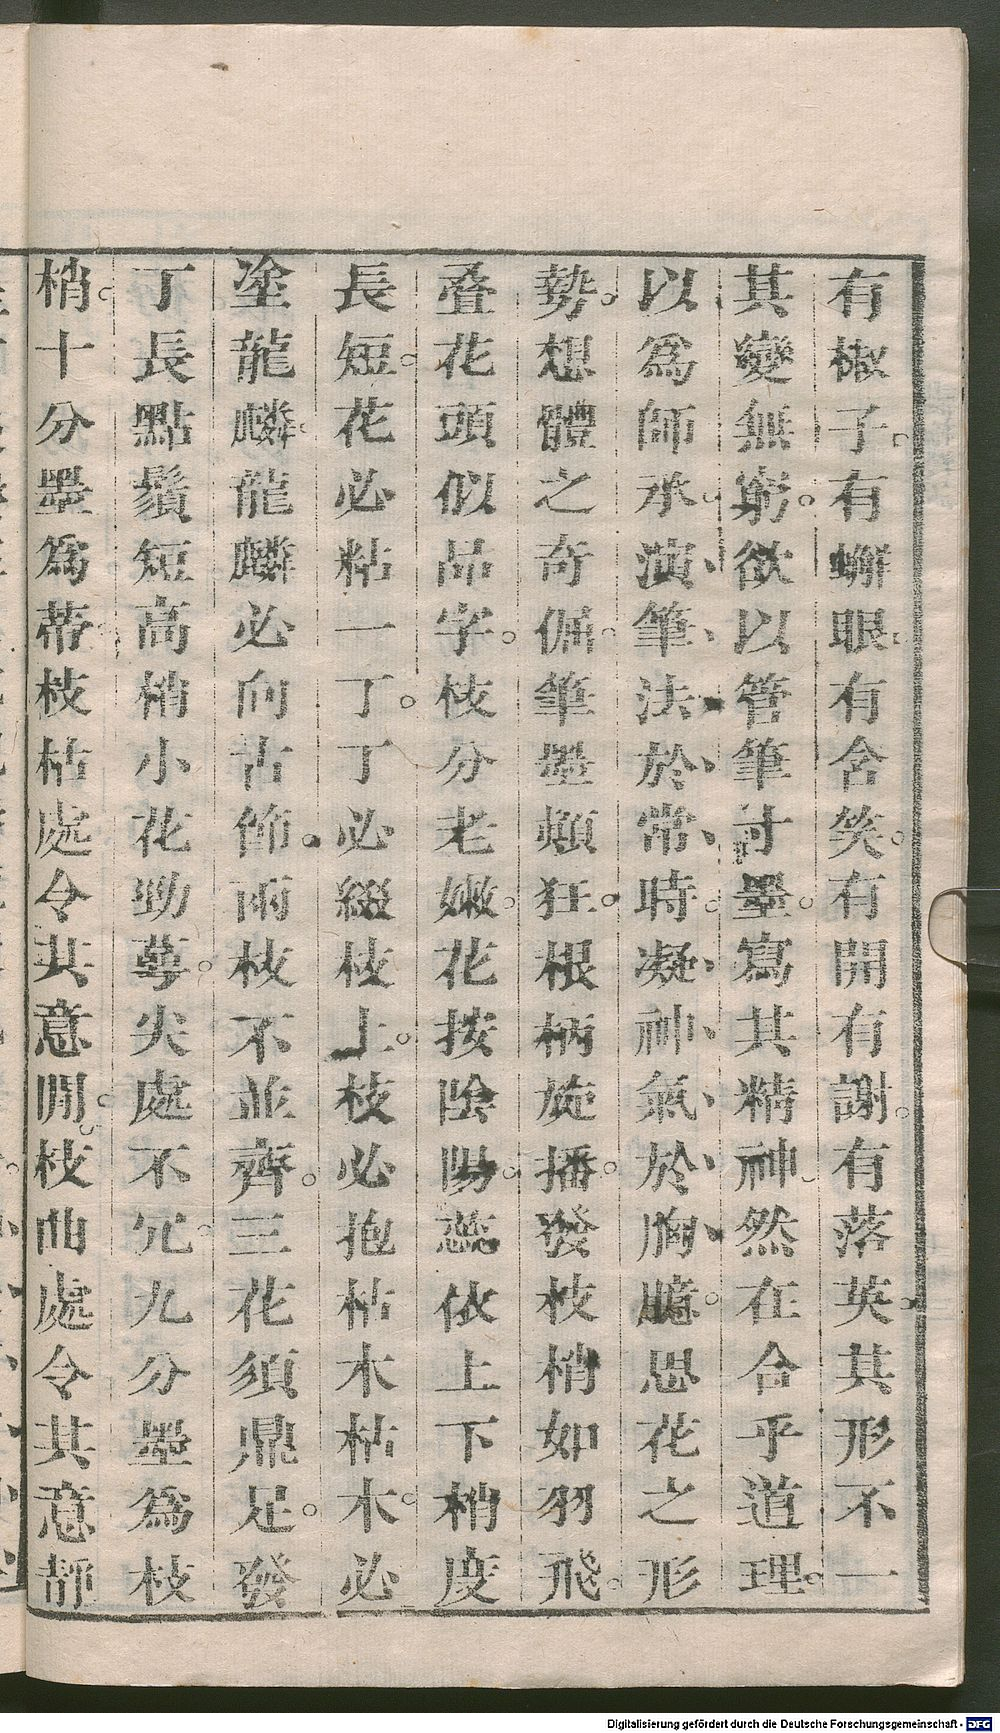 有椒子有蠏眼有含笑有開有謝有落英其形不一
其變無窮欲以管筆寸墨寫其精神然在合乎道理
以為師承演筆法於常時凝神氣於胸臆思花之形
勢想體之奇倔筆墨顛狂根柄旋播發枝梢如羽飛
疊花頭似品字枝分老嫩花按陰陽蕊依上下梢度
長短花必粘一丁丁必綴枝上枝必抱枯木枯木必
塗龍麟龍麟必向古節兩枝不並齊三花須鼎足發
丁長點鬚短高梢小花勁萼尖處不冗九分墨為枝
梢十分墨為蒂枝枯處令其意閒枝曲處令其意靜
Digitalisierung gefördert durch die Deutsche Forschungsgemeinschaft - DFG